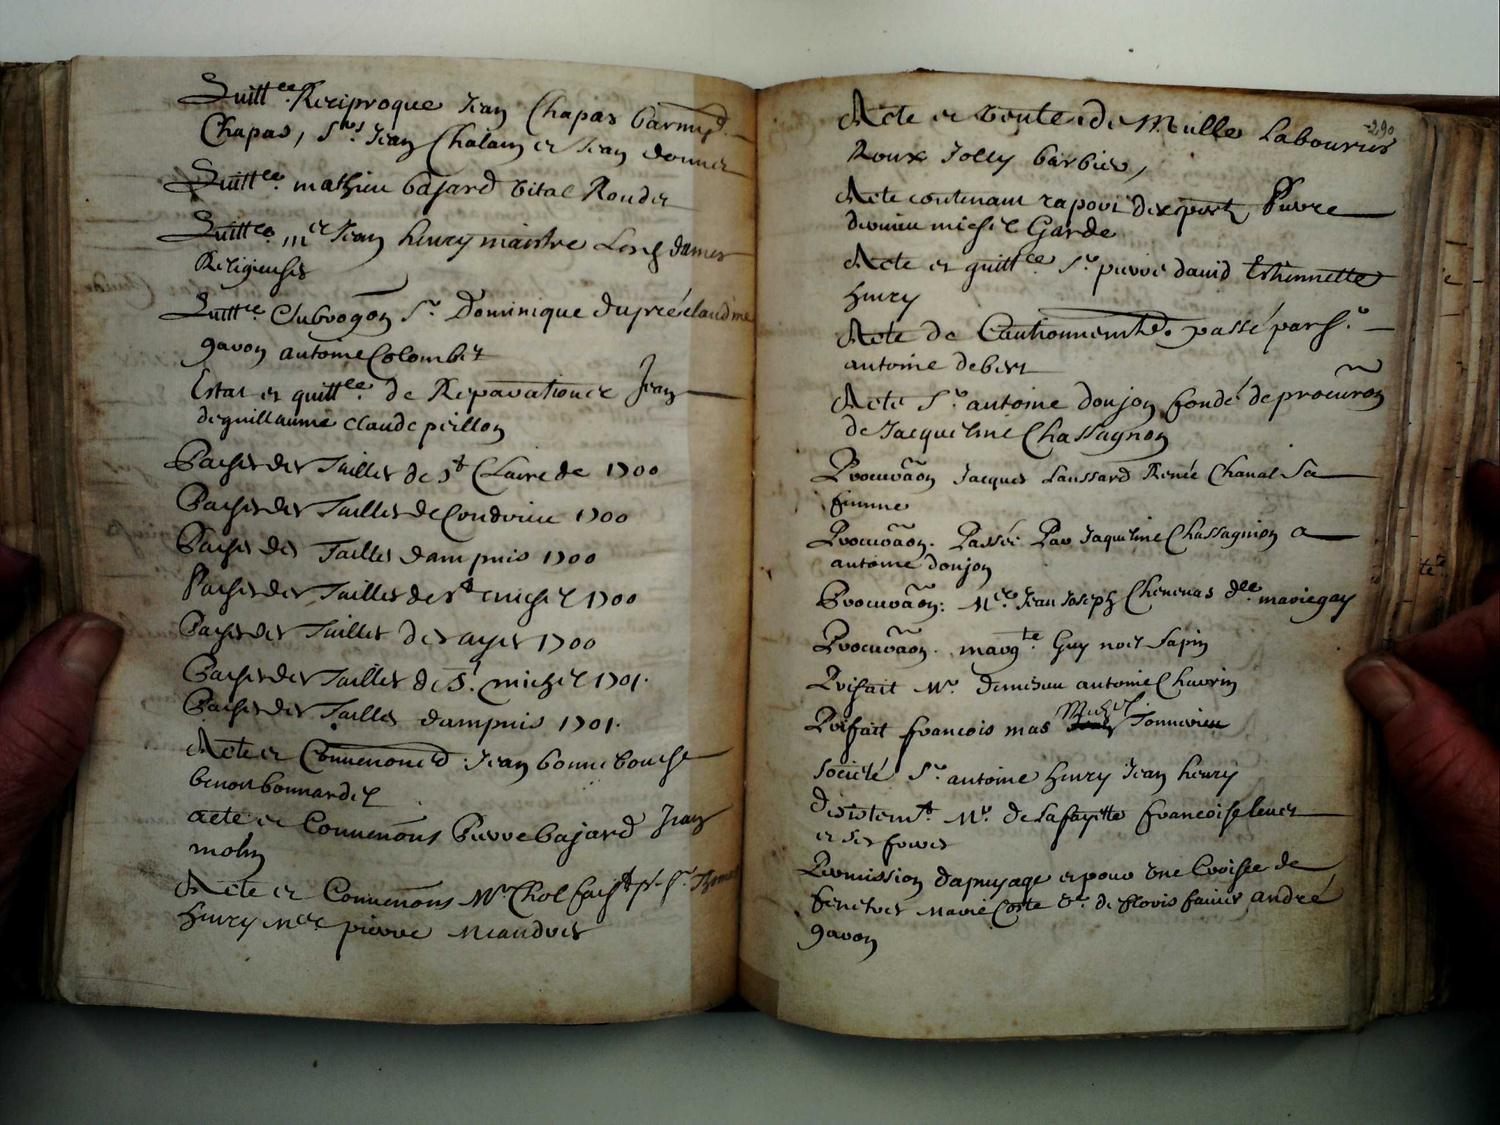 Quitt.ce Reciproque Jean Chapas barthd
Chapas, Srs Jean Chalan et Jean donnet
Quitt.ce mathieu bajard Vital Rondet
Quitt.ce mer Jean henry maistre Les dames
Religieuses
Quitt.ce Subrogon Sr Dominique dupré claud me
gavon antoine Colombet
Estat et quitt.ce de Reparationes Jean
deguillaume claude peillon
Baches des Tailles de St Claire de 1700
Baches des Tailles de Condrieu 1700
Baches des Tailles dampuis 1700
Baches des Tailles de st michel 1700
Baches des Tailles des ayes 1700
Baches des Tailles de S. michel 1701.
Baches des Tailles dampuis 1701.
Acte et Jean bonnebouche
benoit bonnardel
acte et Convenons Pierre bajard Jean
molin
Acte et Convenons Mr Chol
henry Mer pierre Meandres
290
Acte et vente de Meulle Labourier
Roux Jolly barbier,
Acte contenant raport dexperts Pierre
devnieu michel Garde
Acte et quitt.ce Sr pierre david Ethiennette
henry
Acte de Cautionnement passé par Sr
antoine debert
Acte Sr antoine donjon fondé de procuron
de Jacqueline Chassagnon
Procuraon Jacques Laussard Renée Chanal Sa
femme
Procuraon. Passée Par Jaqueline Chassagnion a
antoine donjon
Procuraon: Mre Jean Joseph Chenevas dlle marie gay
Procuraon. margte Guy noel Sapin
Prifait Mr antoine Chavrin
Prifait francois mas Michel Tonnerieu
Societé Sr antoine henry Jean henry
desistemt Mr de Lafayette francoise
et ses freres
Permission dapuyage et pour une Croisée de
fenetres marie Coste de floris andré
gavon